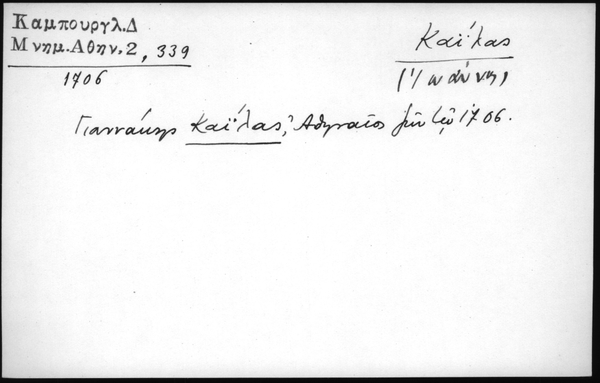 Καμπουργλ.Δ
Μνημ.Αθην.2, 339
1706
Καΐλας
(Ἰωάννης)
Γιαννάκης Καΐλας, Ἀθηναῖος ζῶν τῷ 1706.